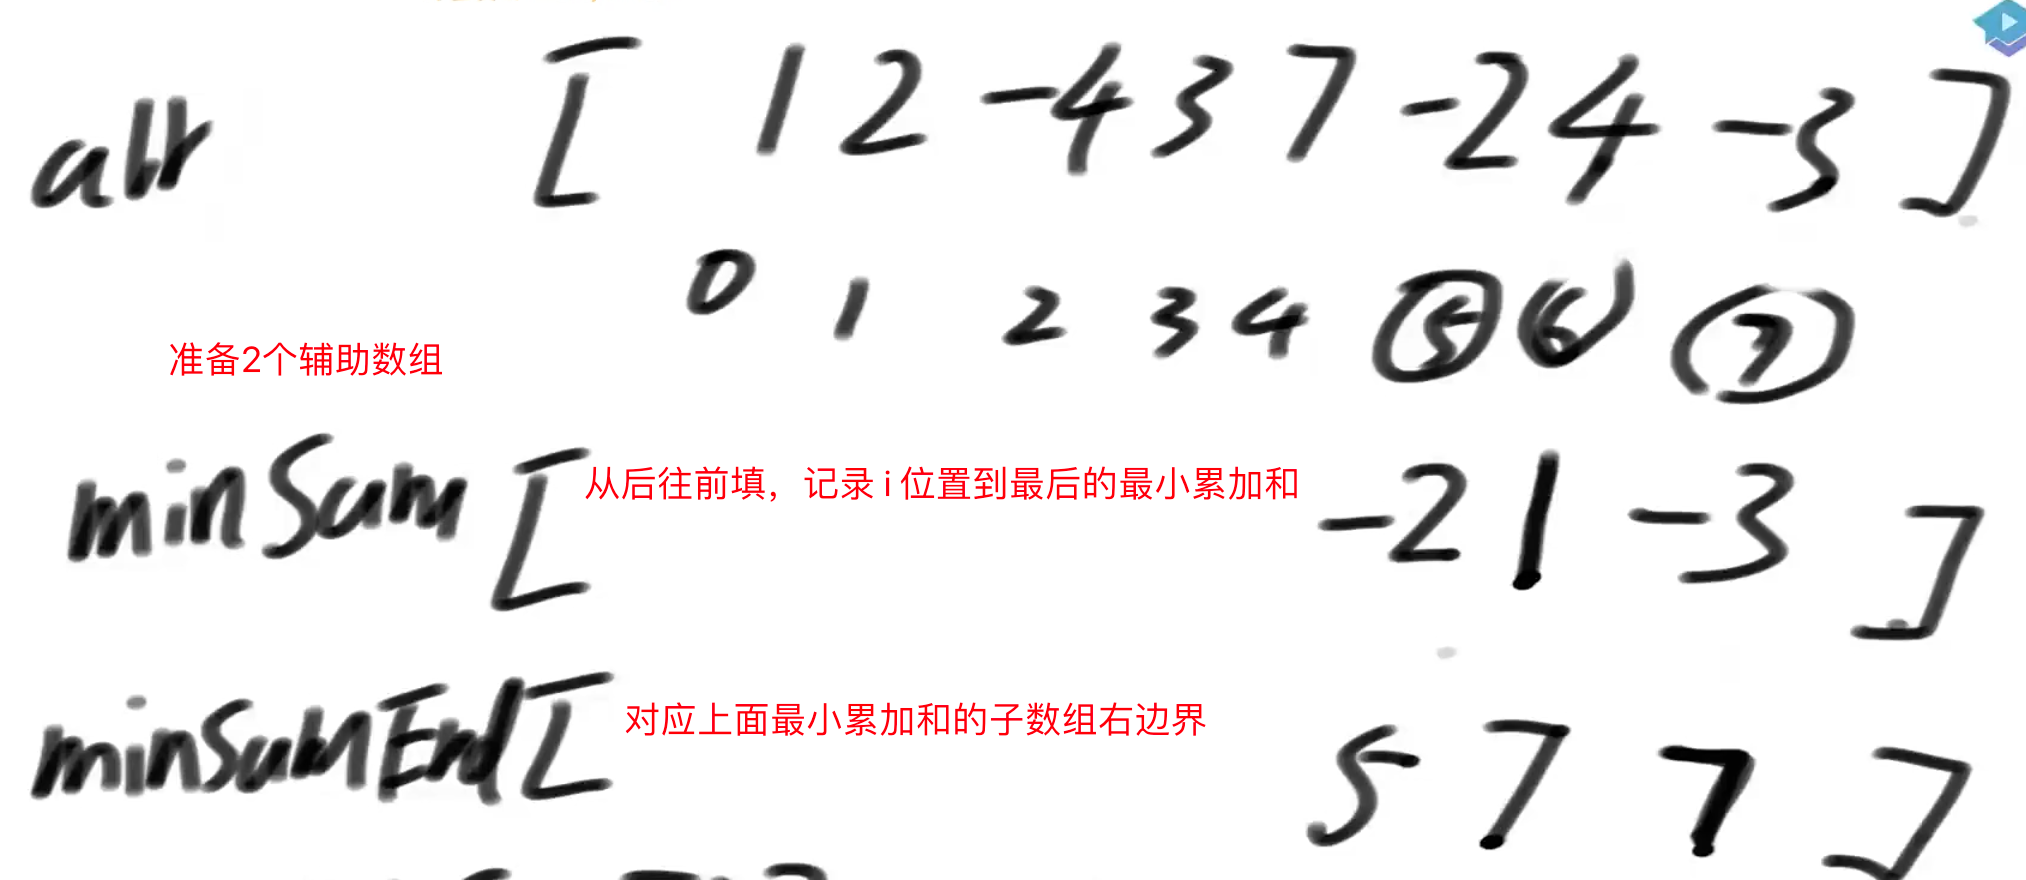 arr [ 1 2 -4 3 7 -2 4 -3 ]
0 1 2 3 4 5 6 7
准备2个辅助数组
minSum [ 从后往前填，记录 i 位置到最后的最小累加和 -2 1 -3 ]
minSumEnd [ 对应上面最小累加和的子数组右边界 5 7 7 ]